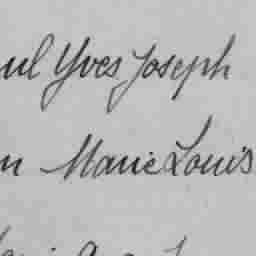 ul Yves Joseph
n Marie Louis